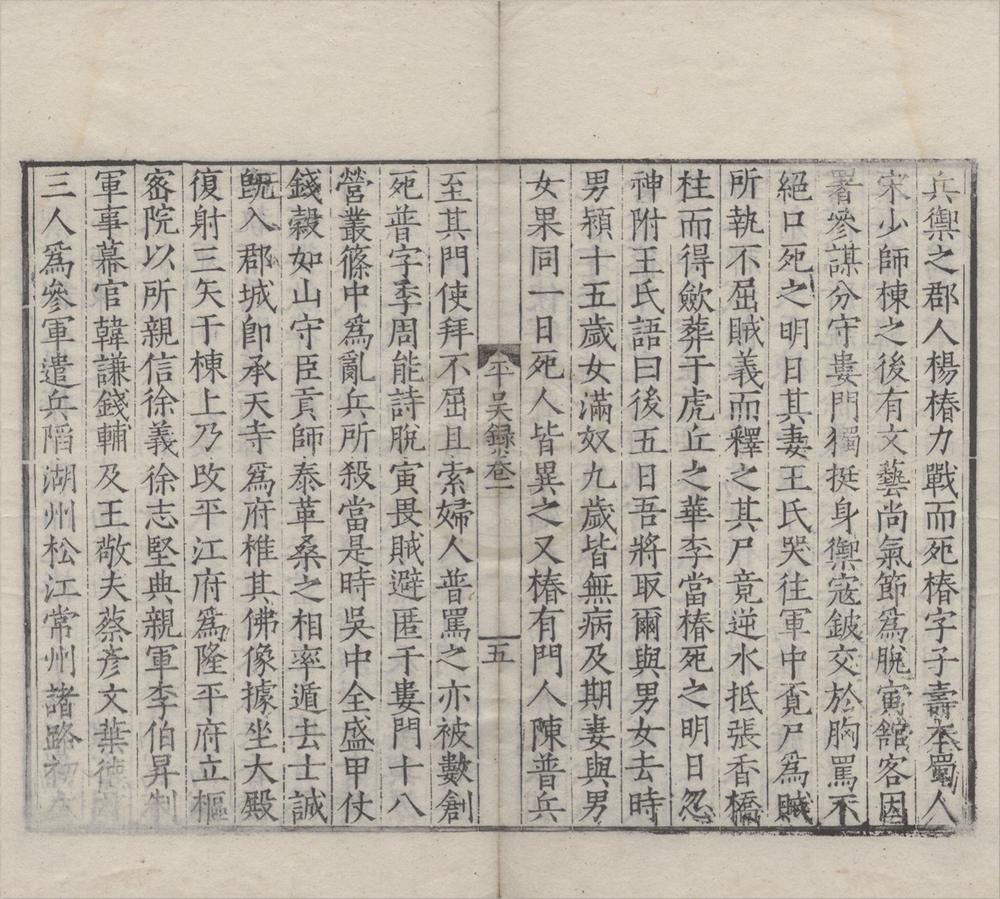 兵禦之郡人楊椿力戰而死椿字子壽本蜀人
宋少師棟之後有文藝尚氣節爲脫寅舘客因
署參謀分守婁門獨挺身禦寇鈹交於胸罵不
絕口死之明日其妻王氏哭往軍中覔尸爲賊
所執不屈賊義而釋之其尸竟逆水抵張香橋
柱而得歛葬于虎丘之華李當椿死之明日忽
神附王氏語曰後五日吾將取爾與男女去時
男穎十五歲女滿奴九歲皆無病及期妻與男
女果同一日死人皆異之又椿有門人陳普兵
平吴録卷一
五
至其門使拜不屈且索婦人普罵之亦被數創
死普字季周能詩脫寅畏賊避匿于婁門十八
營叢篠中爲亂兵所殺當是時吳中全盛甲仗
錢穀如山守臣貢師泰革桑之相率遁去士誠
旣入郡城卽承天寺爲府椎其佛像據坐大殿
復射三矢于棟上乃攺平江府爲隆平府立樞
密院以所親信徐義徐志堅典親軍李伯昇制
軍事幕官韓謙錢輔及王敬夫蔡彥文葉德
三人爲參軍遣兵䧟湖州松江常州諸路